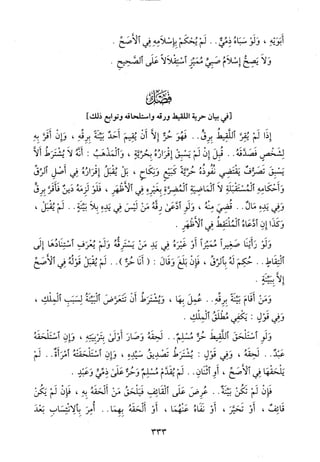 أَبَوَيْهِ ، وَلَوْ سَبَاهُ ذِمِّيٌّ .. لَمْ يُحْكَمْ بِإِسْلَامِهِ فِي ٱلْأَصَحِّ .
وَلَا يَصِحُّ إِسْلَامُ صَبِيٍّ مُمَيِّزٍ ٱسْتِقْلَالاً عَلَى ٱلصَّحِيحِ .
فَصْلٌ
[في بيان حرية اللقيط ورقه واستلحاقه وتوابع ذلك]
إِذَا لَمْ يُقِرَّ ٱللَّقِيطُ بِرِقٍّ .. فَهُوَ حُرٌّ إِلَّا أَنْ يُقِيمَ أَحَدٌ بَيِّنَةً بِرِقِّهِ ، وَإِنْ أَقَرَّ بِهِ
لِشَخْصٍ فَصَدَّقَهُ .. قُبِلَ إِنْ لَمْ يَسْبِقْ إِقْرَارُهُ بِحُرِّيَّةٍ ، وَٱلْمَذْهَبُ : أَنَّهُ لَا يُشْتَرَطُ أَلَّا
يَسْبِقَ تَصَرُّفٌ يَقْتَضِي نُفُوذُهُ حُرِّيَّةً كَبَيْعٍ وَنِكَاحٍ ، بَلْ يُقْبَلُ إِقْرَارُهُ فِي أَصْلِ ٱلرِّقِّ
وَأَحْكَامِهِ ٱلْمُسْتَقْبَلَةِ لَا ٱلْمَاضِيَةِ ٱلْمُضِرَّةِ بِغَيْرِهِ فِي ٱلْأَظْهَرِ ، فَلَوْ لَزِمَهُ دَيْنٌ فَأَقَرَّ بِرِقٍّ
وَفِي يَدِهِ مَالٌ .. قُضِيَ مِنْهُ ، وَلَوِ ٱدَّعَى رِقَّهُ مَنْ لَيْسَ فِي يَدِهِ بِلَا بَيِّنَةٍ .. لَمْ يُقْبَلْ ،
وَكَذَا إِنِ ٱدَّعَاهُ ٱلْمُلْتَقِطُ فِي ٱلْأَظْهَرِ .
وَلَوْ رَأَيْنَا صَغِيراً مُمَيِّزاً أَوْ غَيْرَهُ فِي يَدِ مَنْ يَسْتَرِقُّهُ وَلَمْ يُعْرَفِ ٱسْتِنَادُهَا إِلَى
ٱلْتِقَاطٍ .. حُكِمَ لَهُ بِٱلرِّقِّ ، فَإِنْ بَلَغَ وَقَالَ : ( أَنَا حُرٌّ ) .. لَمْ يُقْبَلْ قَوْلُهُ فِي ٱلْأَصَحِّ
إِلَّا بِبَيِّنَةٍ .
وَمَنْ أَقَامَ بَيِّنَةً بِرِقِّهِ .. عُمِلَ بِهَا ، وَيُشْتَرَطُ أَنْ تَتَعَرَّضَ ٱلْبَيِّنَةُ لِسَبَبِ ٱلْمِلْكِ ،
وَفِي قَوْلٍ : يَكْفِي مُطْلَقُ ٱلْمِلْكِ .
وَلَوِ ٱسْتَلْحَقَ ٱللَّقِيطَ حُرٌّ مُسْلِمٌ .. لَحِقَهُ ، وَصَارَ أَوْلَى بِتَرْبِيَتِهِ ، وَإِنِ ٱسْتَلْحَقَهُ
عَبْدٌ .. لَحِقَهُ ، وَفِي قَوْلٍ : يُشْتَرَطُ تَصْدِيقُ سَيِّدِهِ ، وَإِنِ ٱسْتَلْحَقَتْهُ ٱمْرَأَةٌ .. لَمْ
يَلْحَقْهَا فِي ٱلْأَصَحِّ ، أَوِ ٱثْنَانِ .. لَمْ يُقَدَّمْ مُسْلِمٌ وَحُرٌّ عَلَى ذِمِّيٍّ وَعَبْدٍ .
فَإِنْ لَمْ تَكُنْ بَيِّنَةٌ .. عُرِضَ عَلَى ٱلْقَائِفِ فَيَلْحَقُ مَنْ أَلْحَقَهُ بِهِ ، فَإِنْ لَمْ يَكُنْ
قَائِفٌ ، أَوْ تَحَيَّرَ ، أَوْ نَفَاهُ عَنْهُمَا ، أَوْ أَلْحَقَهُ بِهِمَا .. أُمِرَ بِٱلِانْتِسَابِ بَعْدَ
٣٣٣